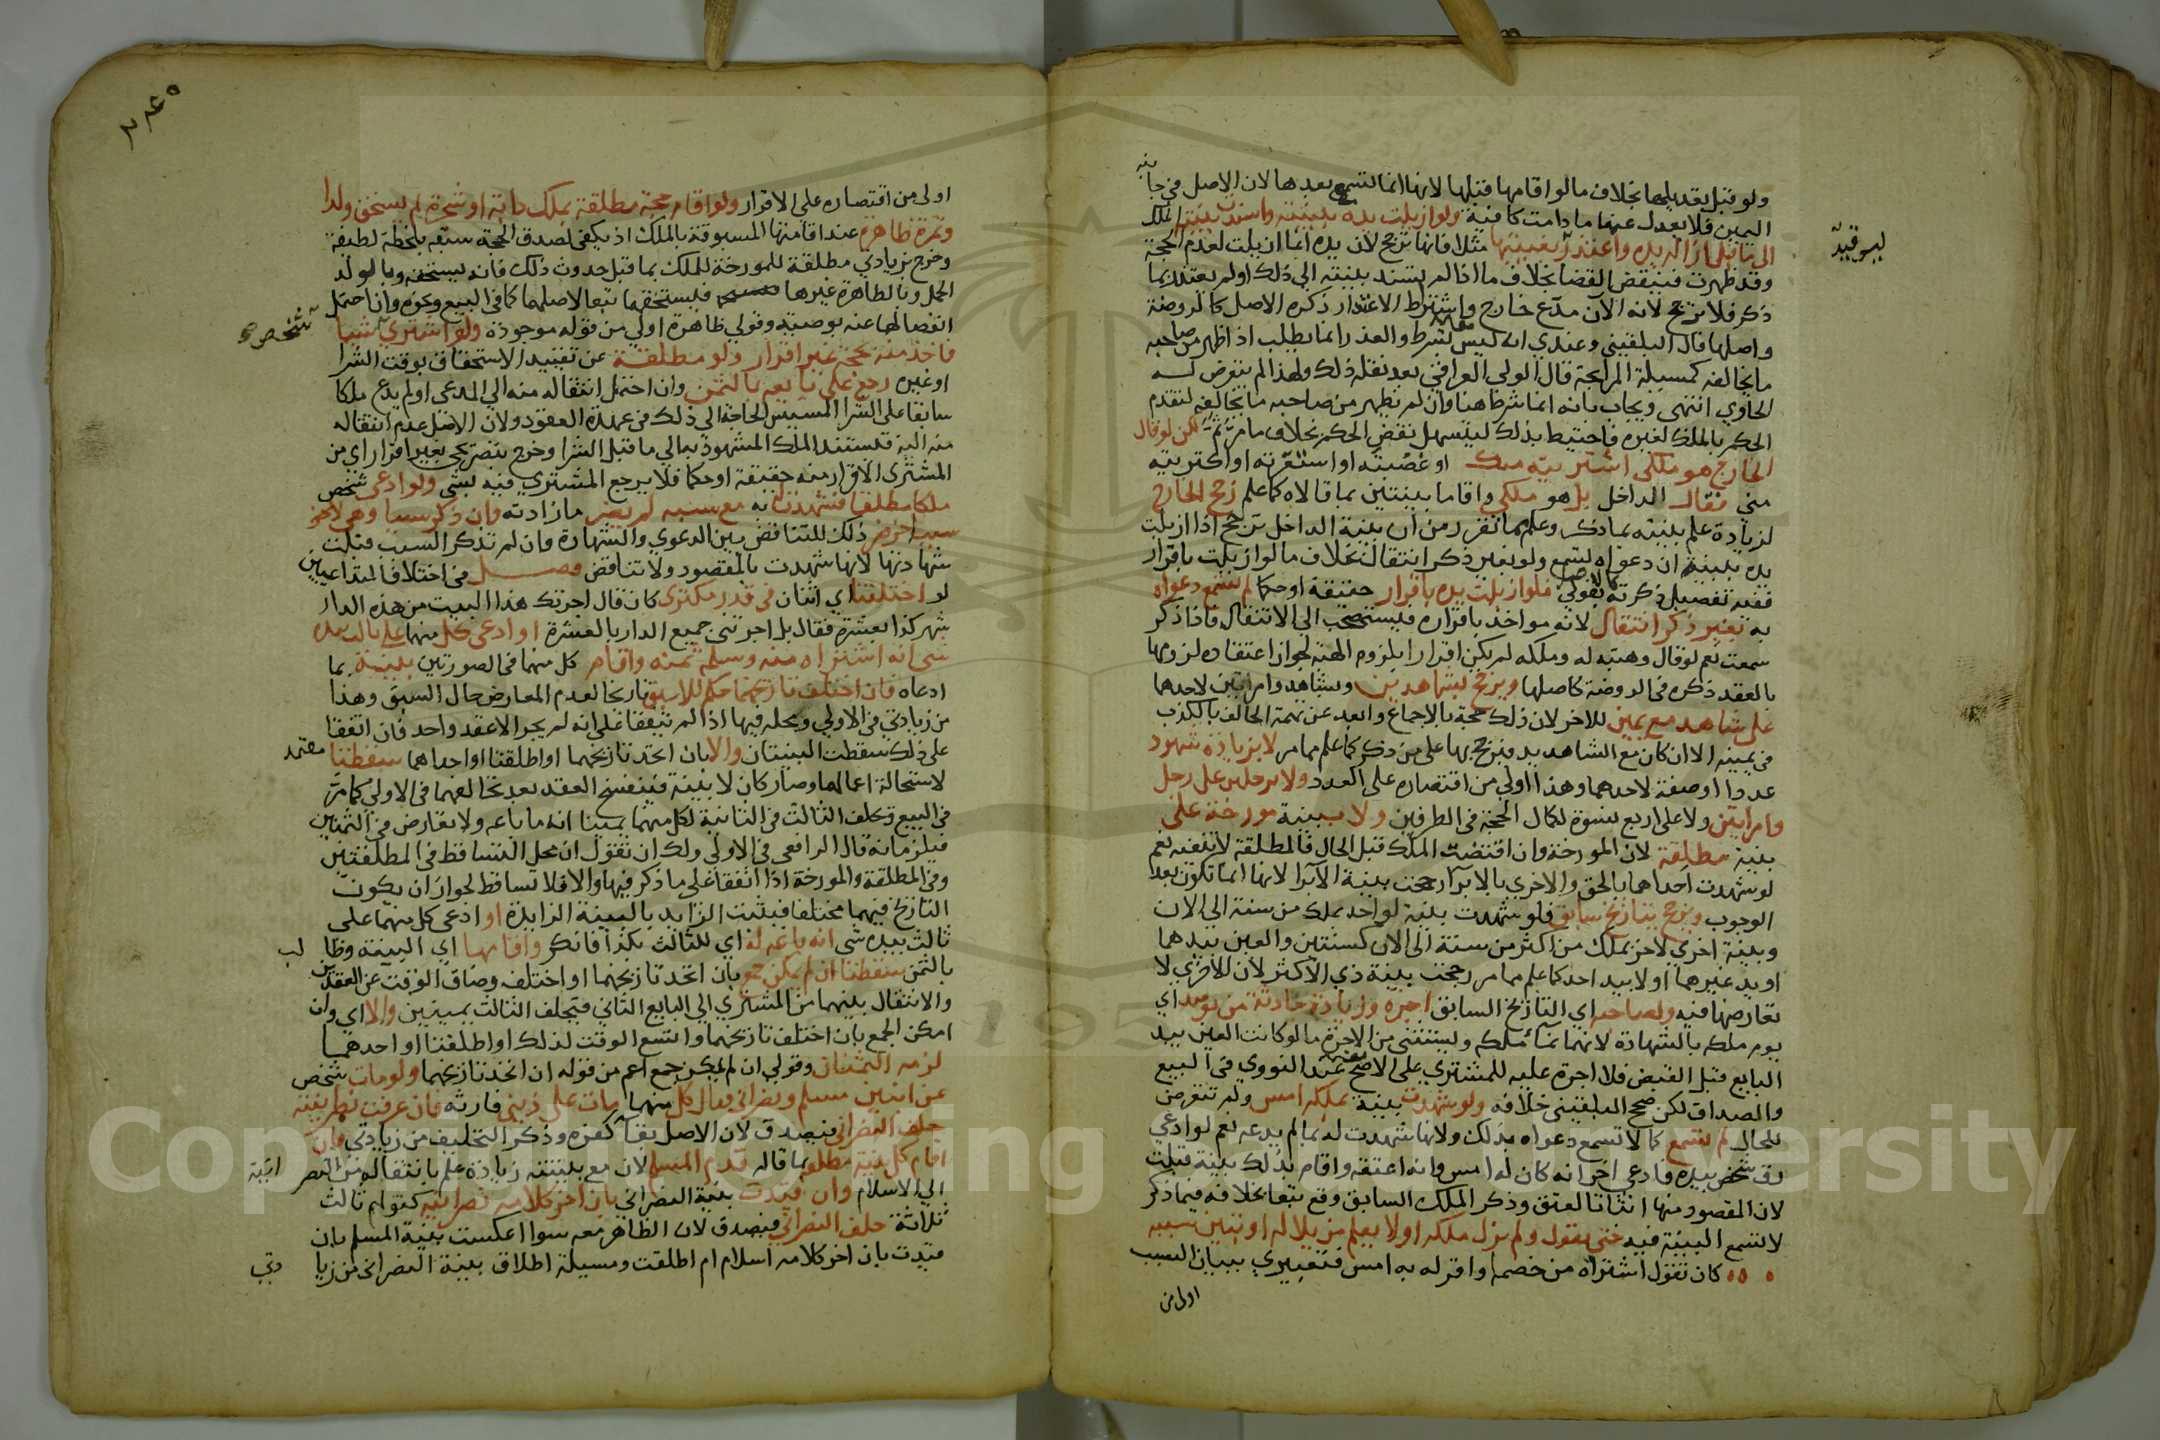 ولو قبل تعديلها بخلاف ما لو اقامها قبلها لانها انما تسمع بعدها لان الاصل في جانبه
اليمين فلا يعدل عنها ما دامت كافية ولو ازيلت يده ببينة واسندت بينته الملك
الى ما قبل ازالة يده واعتذر بغيبتها مثلا فانها ترجح لان يده انما ازيلت لعدم الحجة
وقد ظهرت فينقض القضا بخلاف ما اذا لم يسند بينته الي ذلك او لم يعتذر بما
ذكر فلا ترجح لانه الآن مدع خارج واشتراط الاعتذار ذكره الاصل كالروضة
واصلها قال البلقيني وعندي انه ليس بشرط والعذر انما يطلب اذا ظهر من صاحبه
ما يخالفه كمسيلة المرابحة قال الولي العراقي بعد نقله ذلك ولهذا لم يتعرض له
الحاوي انتهى ويجاب بانه انما شرط هنا وان لم تظهر من صاحبه ما يخالفه لتقدم
الحكم بالملك لغيره فاحتيط بذلك ليسهل نقض الحكم بخلاف ما مر ثم لكن لو قال
الخارج هو ملكي اشتريته منك او غصبته او استعرته او اكتريته
مني فقال الداخل بل هو ملكي واقاما بينتين بما قالاه كما علم رجح الخارج
لزيادة علم بينته بما ذكر وعلم مما تقرر من ان بينة الداخل ترجح اذا ازيلت
يده ببينة ان دعواه تسمع ولو بغير ذكر انتقال بخلاف ما لو ازيلت باقرار
ففيه تفصيل ذكرته بقولي فلو ازيلت يده باقرار حقيقة او حكما لم تسمع دعواه
به بغير ذكر انتقال لانه مواخذ باقراره فيستصحب الي الانتقال فاذا ذكر
سمعت نعم لو قال وهبته له وملكه لم يكن اقرارا بلزوم الهبة لجواز اعتقاده لزومها
بالعقد ذكره في الروضة كاصلها ويرجح بشاهدين وبشاهد وامراتين لاحدهما
على شاهد مع يمين للاخر لان ذلك حجة بالاجماع وابعد عن تهمة الحالف بالكذب
في يمينه الا ان كان مع الشاهد يد فيرجح بها على من ذكر كما علم مما مر لا بزيادة شهود
عددا او صفة لاحدهما وهذا اولي من اقتصاره على العدد ولا برجلين على رجل
وامراتين ولا على اربع نسوة لكمال الحجة في الطرفين ولا ببينة مورخة على
بينة مطلقة لان المورخة وان اقتضت الملك قبل الحال فالمطلقة لا تنفيه نعم
لو شهدت احداهما بالحق والاخرى بالابرا رجحت بينة الابرا لانها انما تكون بعد
الوجوب ويرجح بتاريخ سابق فلو شهدت بينة لواحد بملك من سنة الي الان
وبينة اخرى لاخر بملك من اكثر من سنة الى الان كسنتين والعين بيدهما
او بيد غيرهما او لا بيد احد كما علم مما مر رجحت بينة ذي الاكثر لان الاخرى لا
تعارضها فيه ولصاحبه اي التاريخ السابق اجرة وزيادة حادثة من يومئذ اي
يوم ملكه بالشهادة لانهما نما ملكه ويستثنى من الاجرة ما لو كانت العين بيد
البايع قبل القبض فلا اجرة عليه للمشتري على الاصح عند النووي في البيع
والصداق لكن صحح البلقيني خلافه ولو شهدت بينة بملكه امس ولم تتعرض
للحال لم تسمع كما لا تسمع دعواه بذلك ولانها شهدت له بما لم يدعه نعم لو ادعى
رق شخص بيده فادعى اخر انه كان له امس وانه اعتقه واقام بذلك بينة قبلت
لان المقصود منها اثبات العتق وذكر الملك السابق وقع تبعا بخلافه فيما ذكر
لا تسمع البينة فيه حتى يقول ولم يزل ملكه او لا يعلم مزيلا له او تبين سببه
كان تقول اشتراه من خصمه او اقر له به امس فتعبيري ببيان السبب
اولى من
٢٤٥
اولى من اقتصاره على الاقرار ولو اقام حجة مطلقة بملك دابة او شجرة لم يستحق ولدا
وثمرة ظاهرة عند اقامتها المسبوقة بالملك اذ يكفي لصدق الحجة سبقه بلحظة لطيفة
وخرج بزيادتي مطلقة المورخة للملك بما قبل حدوث ذلك فانه يستحقه وبالولد
الحمل وبالظاهرة غيرها فيستحقها تبعا لاصلهما كما في البيع ونحوه وان احتمل
انفصالهما عنه بوصية وقولي ظاهرة اولي من قوله موجودة ولو اشترى شخص شيئا
فاخذ منه بحجة غير اقرار ولو مطلقة عن تقييد الاستحقاق بوقت الشرا
او غيره رجع على بايعه بالثمن وان احتمل انتقاله منه الي المدعي او لم يدع ملكا
سابقا على الشرا لمسيس الحاجة الي ذلك في عهدة العقود ولان الاصل عدم انتقاله
منه اليه فيستند الملك المشهود به الي ما قبل الشرا وخرج بتصريحي بغير اقرار اي من
المشتري الاقرار منه حقيقة او حكما فلا يرجع المشتري فيه بشي ولو ادعى شخص
ملكا مطلقا فشهدت له به مع سببه لم يضر ما زادته وان ذكر سببا وهي لاخر
سببا اخر ضر ذلك للتناقض بين الدعوى والشهادة وان لم تذكر السبب قبلت
شهادتها لانها شهدت بالمقصود ولا تناقض فصل في اختلاف المتداعيين
لو اختلفا اي اثنان في قدر مكترى كان قال اجرتك هذا البيت من هذه الدار
شهر كذا بعشرة فقال بل اجرتني جميع الدار بالعشرة او ادعى كل منهما على ثالث بيده
شي انه اشتراه منه وسلمه ثمنه واقام كل منهما في الصورتين بينة بما
ادعاه فان اختلف تاريخهما حكم للاسبق تاريخا لعدم المعارض حال السبق وهذا
من زيادتي في الاولى ومحله فيها اذا لم يتفقا على انه لم يجر الا عقد واحد فان اتفقا
على ذلك سقطت البينتان والا بان اتحد تاريخهما او اطلقتا او احداهما سقطتا
معتمد
لاستحالة اعمالهما وصار كان لا بينة فينفسخ العقد بعد تخالفهما في الاولى كما مر
في البيع ويحلف الثالث في الثانية لكل منهما يمينا انه ما باعه ولا تعارض في الثمنين
فيلزمانه قال الرافعي في الاولى ولك ان تقول ان محل التساقط في المطلقتين
وفي المطلقة والمورخة اذا اتفقا على ما ذكر فيها والا فلا تساقط لجواز ان يكون
التاريخ فيهما مختلفا فيثبت الزايد بالبينة الزايدة او ادعى كل منهما على
ثالث بيده شي انه باعه له اي للثالث بكذا فانكر واقامها اي البينة وطالب
بالثمن سقطتا ان لم يمكن جمع بان اتحد تاريخهما او اختلف وضاق الوقت عن العقدين
والانتقال بينهما من المشتري الي البايع الثاني فيحلف الثالث يمينين والا اي وان
امكن الجمع بان اختلف تاريخهما واتسع الوقت لذلك او اطلقتا او احدهما
لزمه الثمنان وقولي ان لم يمكن جمع اعم من قوله ان اتحد تاريخهما ولو مات شخص
عن ابنين مسلم ونصراني فقال كل منهما مات على ديني فارثه فان عرفت نصرانيته
حلف النصراني فيصدق لان الاصل بقا كفره وذكر التحليف من زيادتي وان
اقام كل بينة مطلقة بما قاله قدم المسلم لان مع بينته زيادة علم بانتقاله من النصرانية
الي الاسلام وان قيدت بينة النصراني بان اخر كلامه نصرانية كقولهم ثالث
ثلاثة حلف النصراني فيصدق لان الظاهر معه سوا اعكست بينة المسلم بان
قيدت بان اخر كلامه اسلام ام اطلقت ومسيلة اطلاق بينة النصراني من زيادتي
Copyright © King Saud University